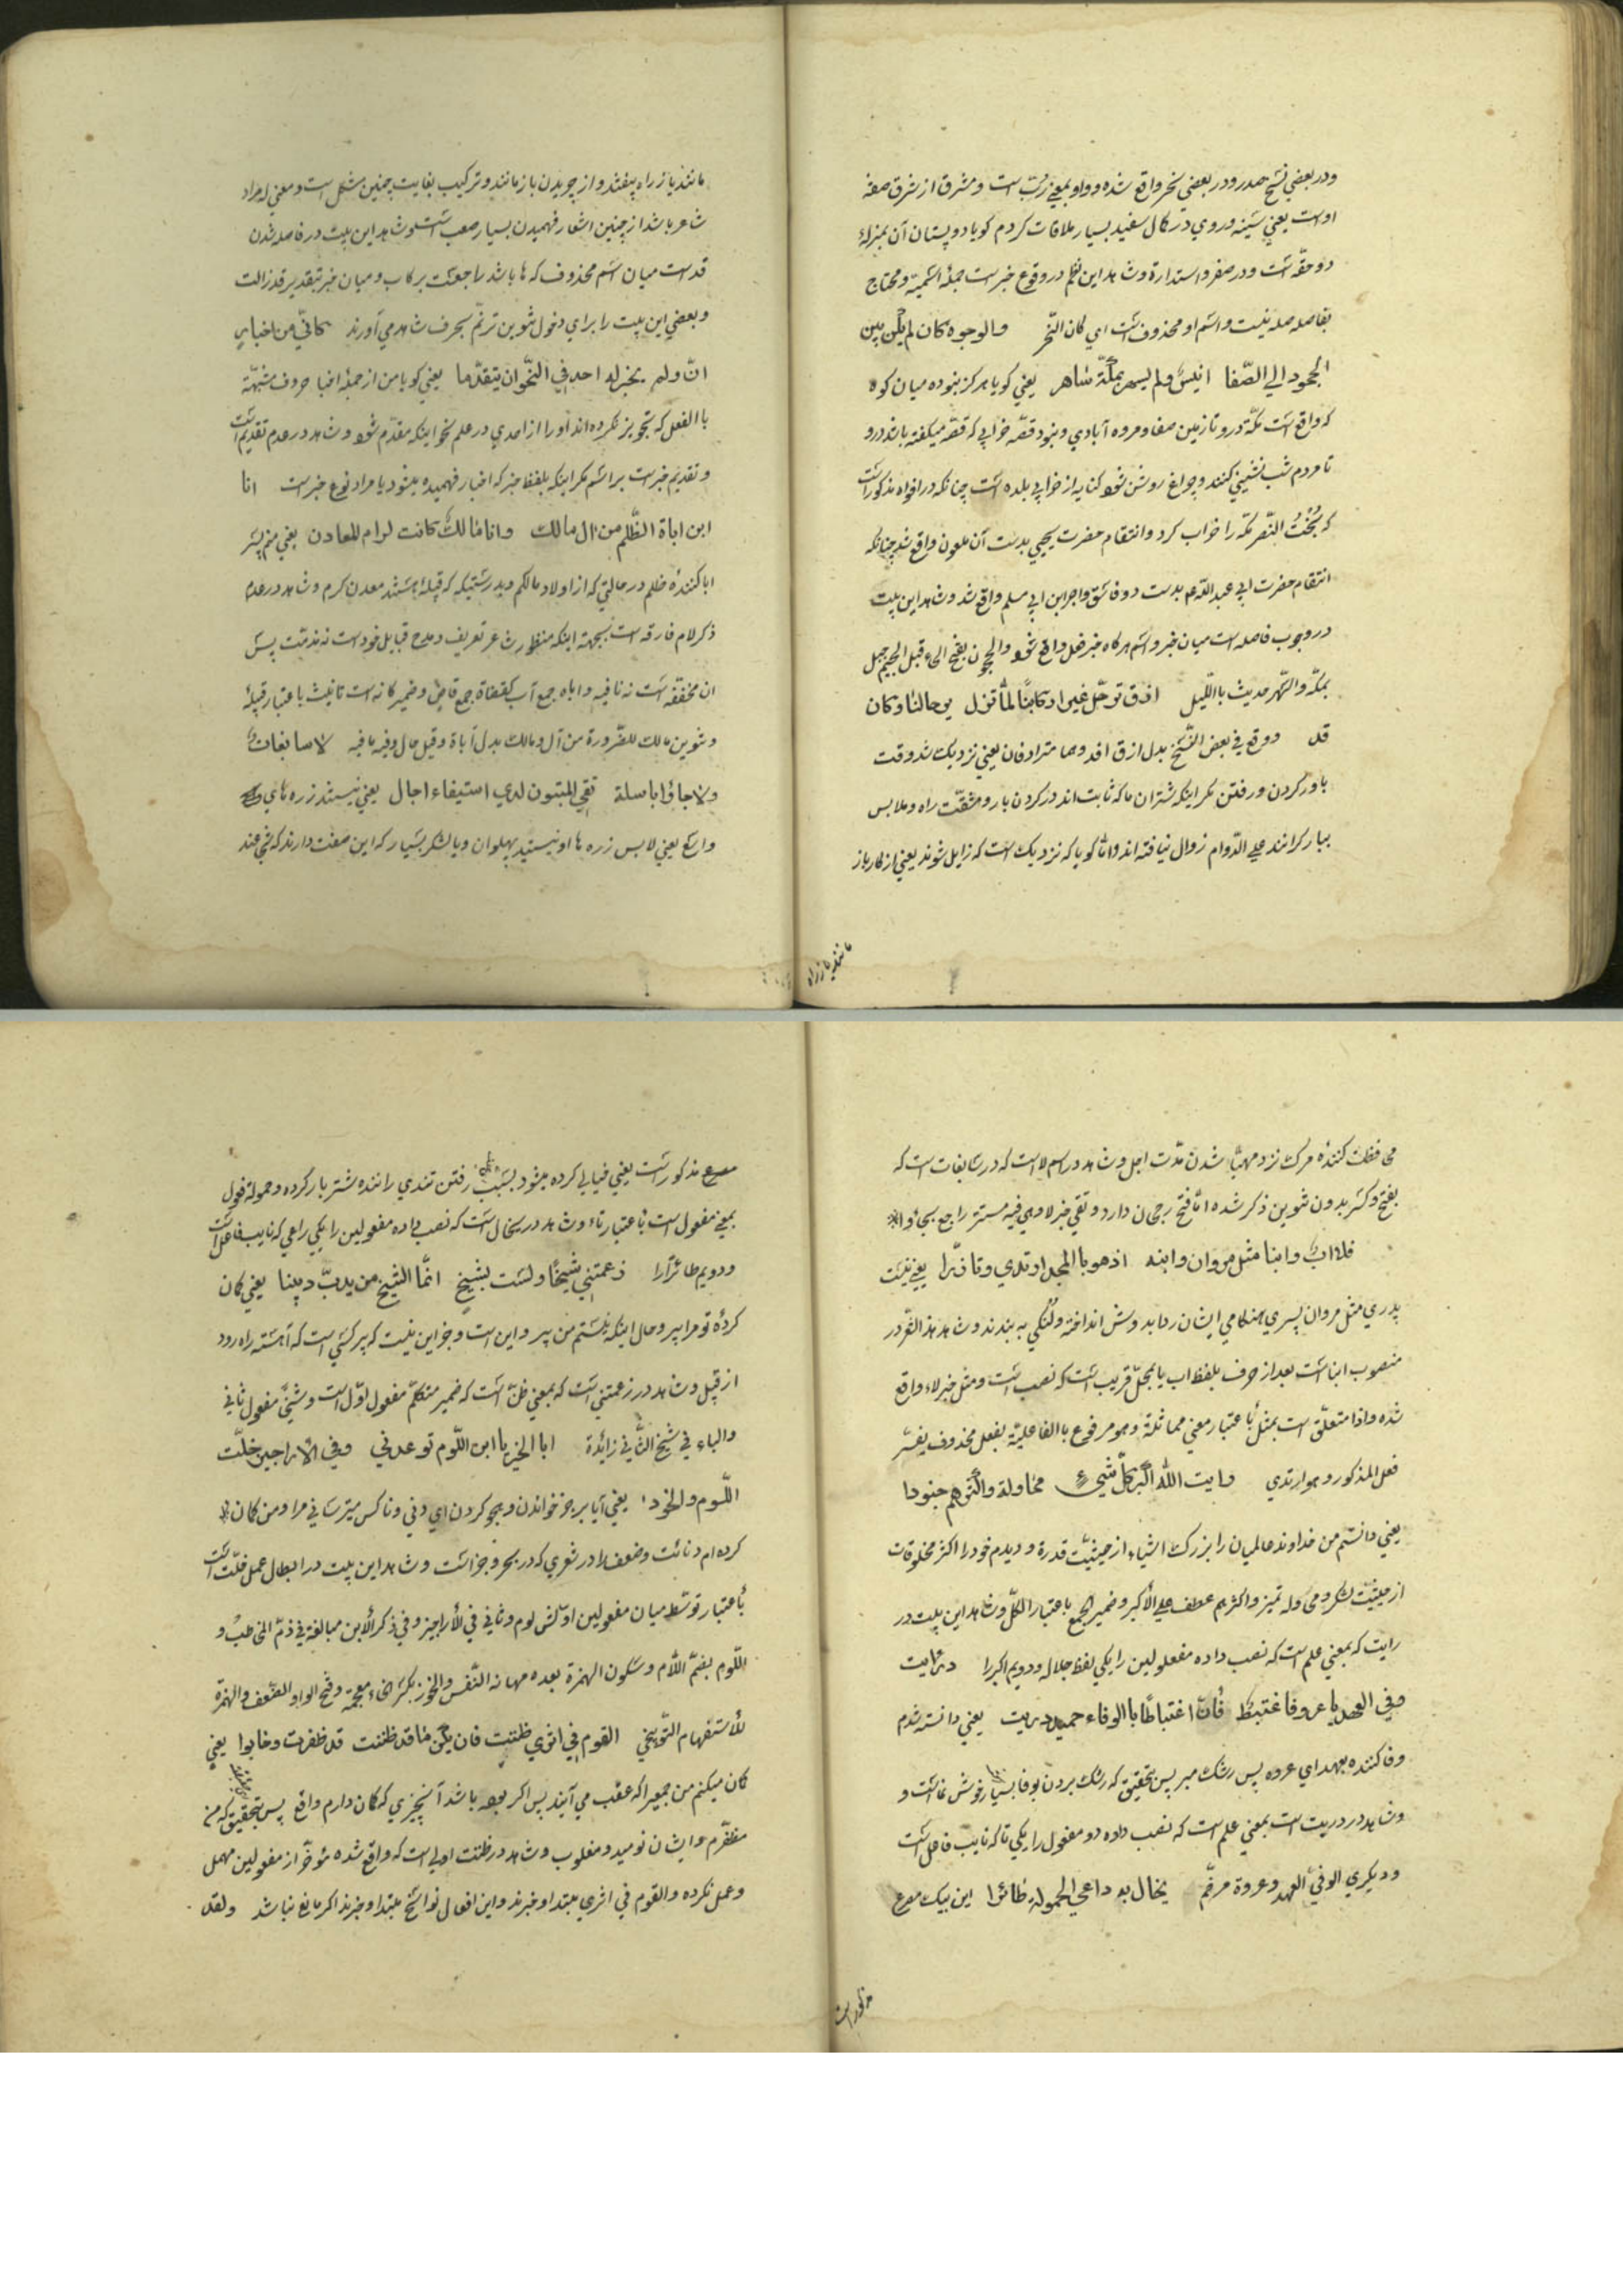 ودر بعضي نسخ صدر ودر بعضي نحر واقع شده وواو بمعني ربّ است ومشرق از شرق صفة
اوست يعني سينه وروي در كمال سفيد بسيار ملاقات كردم كويا دو پستان آن بمنزلهٔ
دو حقّه است ودر صغر واستدارة وشاهد اين نظم در وقوع خبر است جملهٔ اسميّة ومحتاج
بفاصله نيست واسم او محذوف است اي كان النّحر والوجوه كان لم يكن بين
الحجون الي الصّفا انيسٌ ولم يسمر بمكّة سامر يعني كويا هركز نبوده ميان كوه
كه واقع است بمكّة درو تا زمين صفا ومروه آبادي ونبود قصّه خواني كه قصّه ميكفته باشد درو
تا مردم شب نشيني كنند وچراغ روشن شود كنايه از خرابي بلده است چنانكه در افواه مذكور است
كه بُخْتُ النّصر مكّه را خراب كرد وانتقام حضرت يحيي بدست آن ملعون واقع شد چنانكه
انتقام حضرت ابي عبد اللّه بدست دو فاسق واجر ابن ابي مسلم واقع شد وشاهد اين بيت
در وجوب فاصله است ميان خبر واسم هركاه خبر فعل واقع شود والحجون بفتح الحاء قبل الجيم جبل
بمكّه والسّمر حديث باللّيل افدق ترحّل غير ان ركابنا لمّا تزل برحالنا وكان
قد ووقع في بعض النّسخ بدل ازق افد وهما مترادفان يعني نزديك شد وقت
باور كردن ورفتن مكر اينكه شتران ما كه ثابت اند در كردن بار ومشقّت راه وملابس
ببار كرانند علي الدّوام زوال نيافته اند وامّا كويا كه نزديك است كه زايل شوند يعني از كار باز
مانند يا از راه
مانند يا از راه بيفتند واز چريدن باز مانند وتركيب بغايت چنين مشكل است ومعني كه مراد
شاعر باشد از چنين اشعار فهميدن بسيار صعب است وشاهد اين بيت در فاصله شدن
قد است ميان اسم محذوف كه ها باشد راجعست بركاب وميان خبر بتقدير قد زالت
وبعضي اين بيت را براي دخول تنوين ترنّم بحرف شاهد مي آورند كانّي من اخبار
انّ ولم يجز له احد في النّحو ان يتقدّما يعني كويا من از جملهٔ اخبار حروف مشبهّة
بالفعل كه تجويز نكرده اند او را از احدي در علم نحو اينكه مقدّم شود وشاهد در عدم تقديم است
وتقديم خبر است بر اسم مكر اينكه بلفظ خبر كه اخبار فهميده ميشود يا مراد نوع خبر است انا
ابن اباة الظّلم من ال مالك وانّ مالك كانت كرام المعادن يعني منم پسر
ابا كنندهٔ ظلم در حالتي كه از اولاد مالكم وبدرستيكه كه قبيلهٔ هستند معدن كرم وشاهد در عدم
ذكر لام فارقه است بجهة اينكه منظور شاعر تعريف ومدح قبايل خود است نه مذمّت پس
ان مخفّفه است نه نافيه واباه جمع آب كقضاة جمع قاضٍ وضمير كانت است تانيث باعتبار قبيلهٔ
وتنوين مالك للضّرورة من آل ومالك بدل اباة وقيل حال وفيه ما فيه لا سابغات
ولا جاؤا باسلة تقي المنون لدي استيفاء اجال يعني نيستند زره هاي
واسع يعني لابس زره ها ونيستيد پهلوان ويا لشكر بسيار كه اين صفت دارند كه نمي عند
محافظت كنندهٔ مرك نزد مهيّا شدن مدّت اجل وشاهد در اسم لا است كه در سابغات است كه
بفتح وكسر بدون تنوين ذكر شده امّا فتح رجحان دارد وتقي خبر لا وهي فيه مستتر راجع بجاؤا
فلا اب وابنا مثل مروان وابنه اذ هو بالمجد ارتدي وتازّرا يعني نيست
پدري مثل مروان پسري هنكامي ايشان ردا بدوش انداخته ولنكي به بندند وشاهد هذا الشّعر در
منصوب ابنا است بعد از حرف بلفظ اب يا بمحلّ قريب است كه نصب است ومثل خبر لاء واقع
شده واذا متعلّق است بمثل باعتبار معني مماثلة وهو مرفوع بالفاعليّة بفعل محذوف يفسّر
فعل المذكور وهو ارتدي رايت اللّه اكبر كلّ شيء محاولة واكثرهم جنودا
يعني دانستم من خداوند عالميان را بزرك اشياء از حيثيّت قدرة وديدم خود را اكثر مخلوقات
از حيثيّت لشكر ومحاوله تميز واكثرهم عطف علي الأكبر وضمير الجمع باعتبار الكلّ وشاهد اين بيت در
رايت كه بمعني علم است كه نصب داده مفعولين را يكي لفظ جلاله ودويم اكبر را دريت
وفي العهد يا عرو فاغتبط فانّ اغتباطًا بالوفاء حميد دريت يعني دانسته شدم
وفا كننده بعهد اي عروه پس رشك ببر پس بتحقيق كه رشك بردن بوفا بسيار خوش نما است و
وشاهد در دريت است بمعني علم است كه نصب داده دو مفعول را يكي تا كه نايب فاعل است
وديكري الوفيّ العهد وعروة مرخّم يخال به داعي الحمولة طائرا اين بيت
مذكور است
مصرع مذكور است يعني خيالي كرده ميشود بسبب رفتن تندي راننده شتر بار كرده وحمولة فعول
بمعني مفعول است باعتبار تاء وشاهد در يخال است كه نصب داده مفعولين را يكي راعي كه نايب فاعل است
ودويم طائرا را زعمتني شيخًا ولست بشيخ انّما الشّيخ من يدبّ دبيبا يعني كان
كردهٔ تو مرا پير وحال اينكه نيستم من پير واين است وجز اين نيست كه پير كسي است كه آهسته راه رود
از قبل وشاهد در زعمتني است كه بمعني ظنّ است كه ضمير متكلّم مفعول اوّل است وشيخًا مفعول ثاني
والباء في شيخ الثّاني زائدة ابالاراجيز يا ابن اللّوم توعدني وفي الأراجيز خلت
اللّوم والخور يعني آيا برجز خواندن وهجو كردن اي دني وناكس ميترساني مرا ومن كمان
كرده ام دنائت وضعف را در شعري كه در بحر رجز است وشاهد اين بيت در ابطال عمل خلت است
باعتبار توسّط ميان مفعولين اوّلش لوم وثاني في الأراجيز وفي ذكر الأبن مبالغة في ذمّ المخاطب و
اللّوم بضمّ اللّام وسكون الهمزة بعده مهانة النّفس والخور بكسر خاء معجمة وفتح الواو الضّعف والهمزة
للأستفهام التّوبيخي القوم في اثري ظننت فان يكن ما قد ظننت قد ظفرت وخابوا يعني
كان ميكنم من جميع را كه عقب مي آيند پس اكر بوده باشد آنچيزي كه كمان دارم واقع پس بتحقيق كه من
مظفّرم وايشان نوميد ومغلوب وشاهد در ظننت اولي است كه واقع شده مؤخّر از مفعولين مهمل
وعمل نكرده والقوم في اثري مبتدا وخبرند واين افعال نواسخ مبتدا وخبرند اكر مانع نباشد ولقد